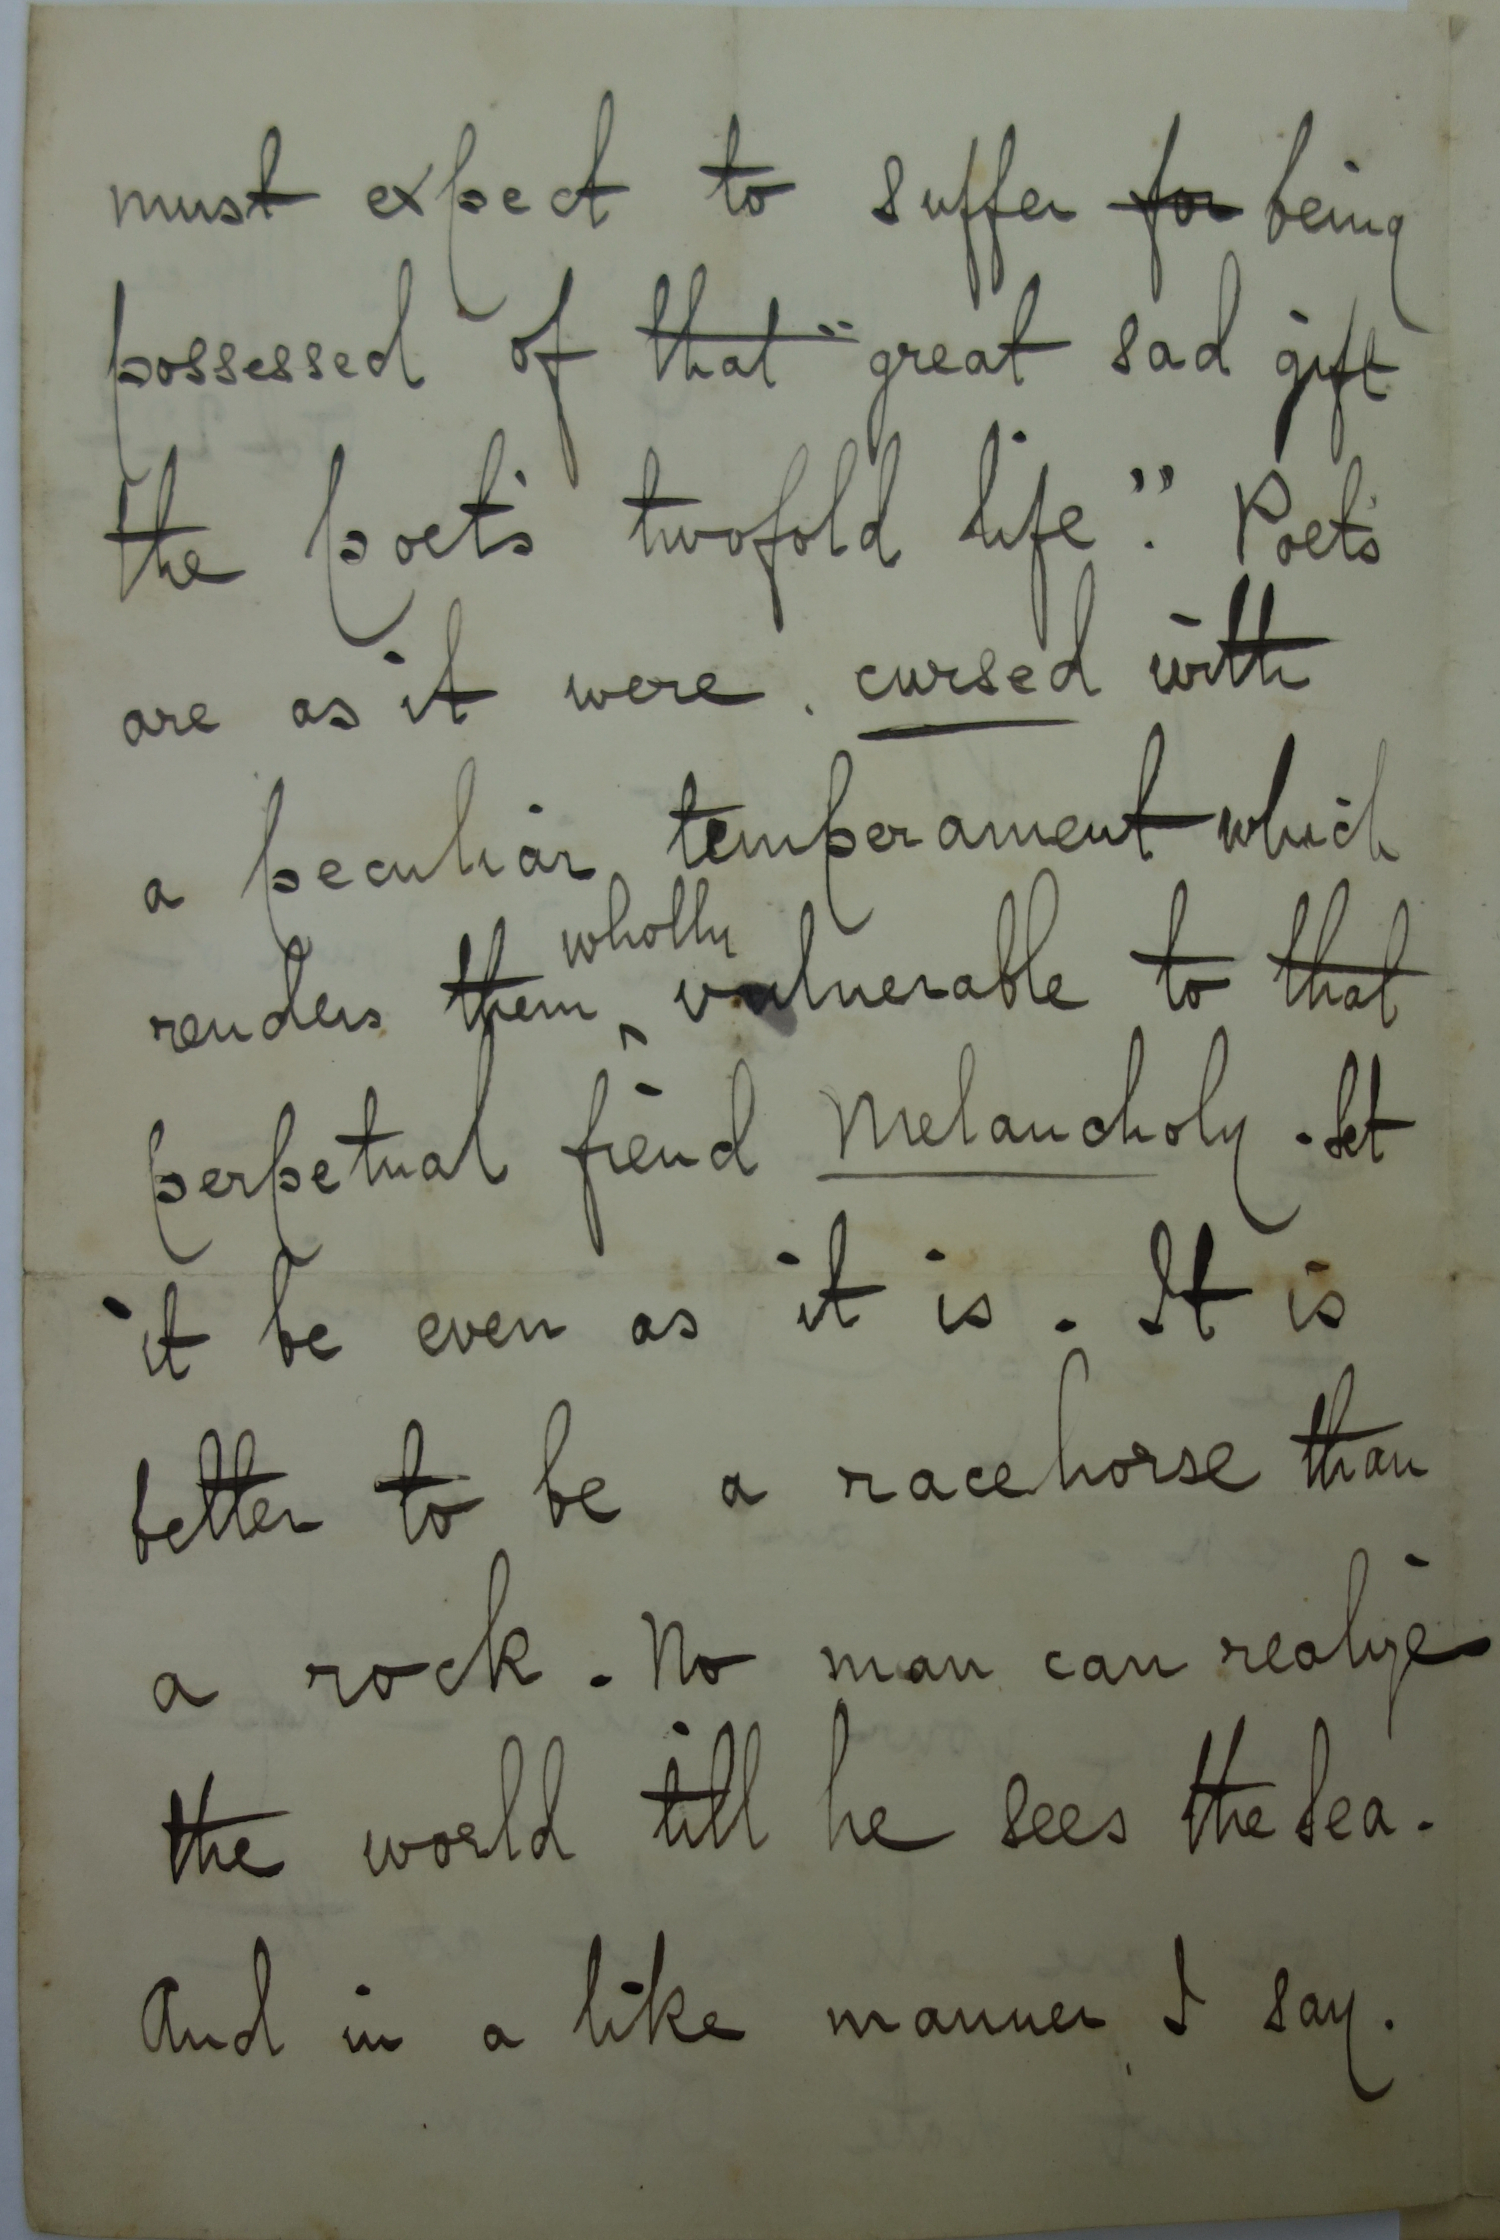 must expect to suffer for being
possessed of that "great sad gift
the poet's twofold life". Poet's
are as it were, cursed with
a peculiar temperament which
wholly
renders them ‸ vulnerable to that
perpetual fiend Melancholy. Let
it be even as it is. It is
better to be a racehorse than
a rock. No man can realize
the world till he sees the sea.
And in a like manner I say.